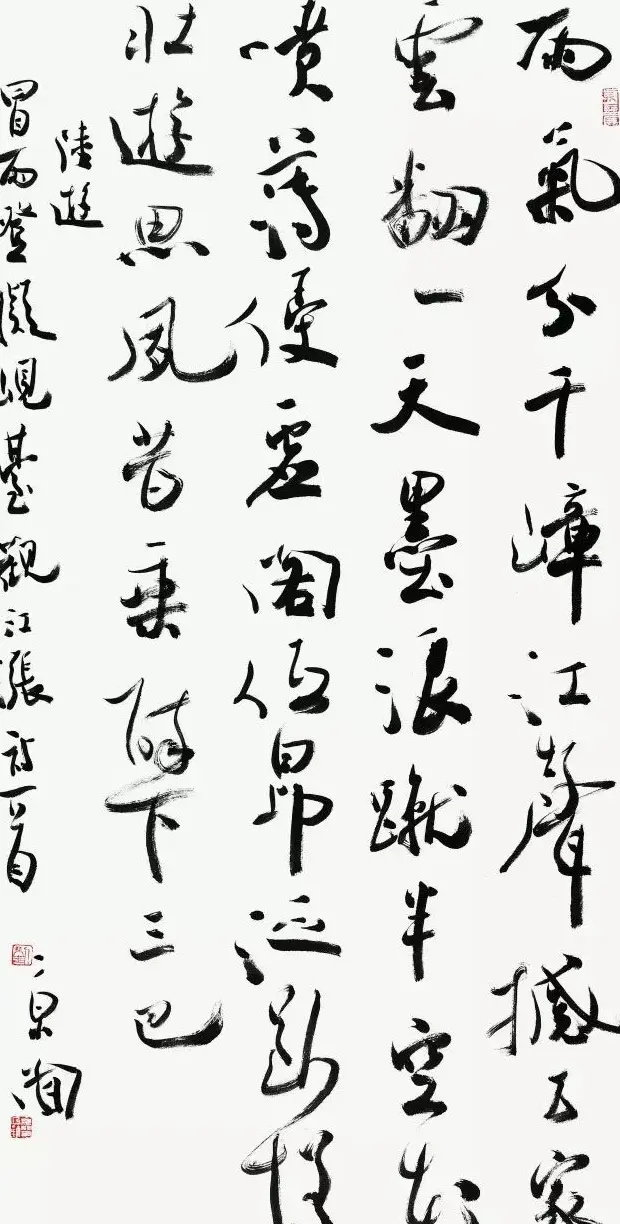 雨氣分千嶂江聲撼万家
雲翻一天墨浪蹴半空花
噴薄侵虛閣低昂泛斷槎
壯遊思夙昔乘醉下三巴
陸遊
冒雨登擬峴臺觀江漲詩一首